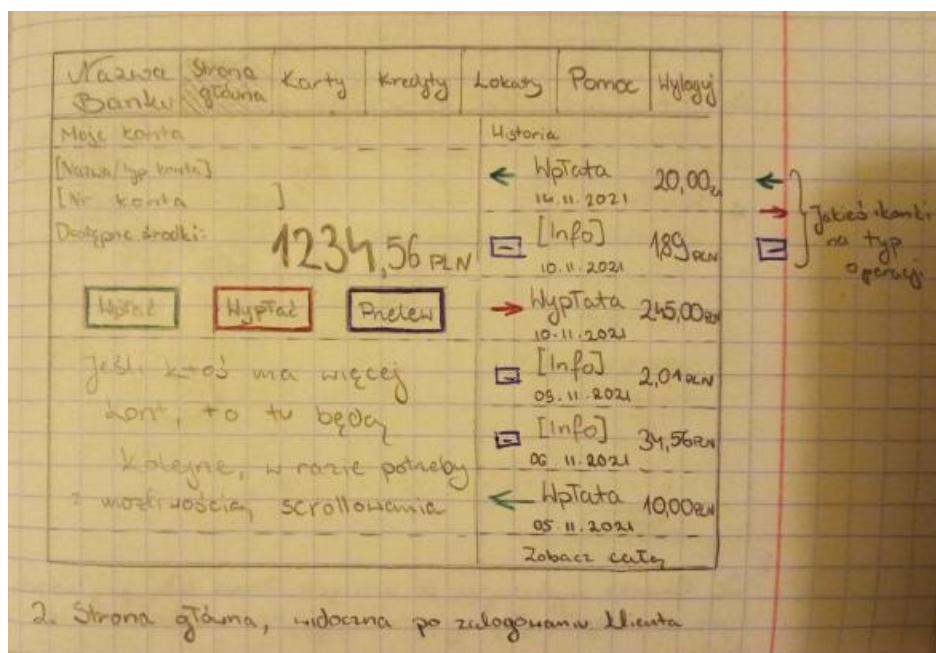 Nazwa Banku
Strona główna
Karty
Kredyty
Lokaty
Pomoc
Wyloguj
Moje konta
[Nazwa/typ konta]
[Nr konta ]
Dostępne środki:
1234,56 PLN
Wpłać
Wypłać
Przelew
Jeśli ktoś ma więcej
kont, to tu będą
kolejne, w razie potrzeby
z możliwością scrollowania
Historia
Wpłata 20,00
14.11.2021
[Info] 1,89 PLN
10.11.2021
Wypłata 245,00 PLN
10.11.2021
[Info] 2,01 PLN
09.11.2021
[Info] 34,56 PLN
06.11.2021
Wpłata 10,00 PLN
05.11.2021
Zobacz całą
Jakieś ikonki
na typ
operacji
2. Strona główna, widoczna po zalogowaniu klienta